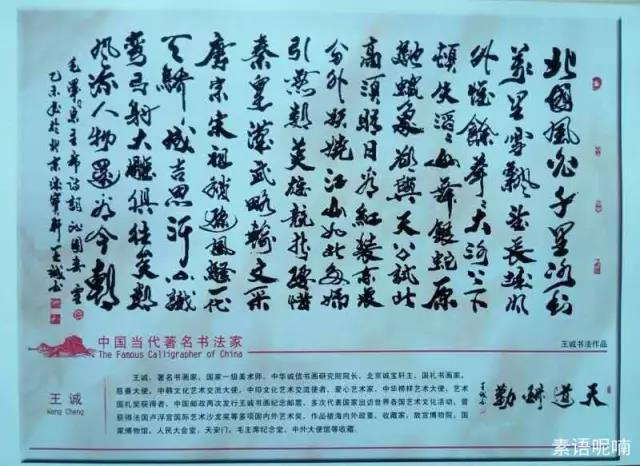 北國風光千里冰封
萬里雪飄望長城内
外惟餘莽莽大河上下
頓失滔滔山舞銀蛇原
馳蠟象欲與天公試比
高須晴日看紅裝素裹
分外妖嬈江山如此多嬌
引無數英雄競折腰惜
秦皇漢武略輸文采
唐宗宋祖稍遜風騷一代
天驕成吉思汗只識
彎弓射大雕俱往矣數
風流人物還看今朝
毛澤東主席詩詞沁園春雪
乙未 於北京诚寶軒王誠書
中国当代著名书法家
The Famous Calligrapher of China
王诚书法作品
王 诚
Wang Cheng
王诚，著名书画家，国家一级美术师，中华诚信书画研究院院长，北京诚宝轩主，国礼书画家，
慈善大使，中韩文化艺术交流大使，中印文化艺术交流使者，爱心艺术家，中华榜样艺术大使，艺术
国礼奖获得者，中国邮政两次发行王诚书画纪念邮票，多次代表国家出访世界各国艺术文化活动，曾
获得法国卢浮宫国际艺术沙龙奖等多项国内外艺术奖，作品被海内外政要，收藏家，故宫博物院，国
家博物馆，人民大会堂，天安门，毛主席纪念堂，中外大使馆等收藏.
天道酬勤
王诚书
素语呢喃